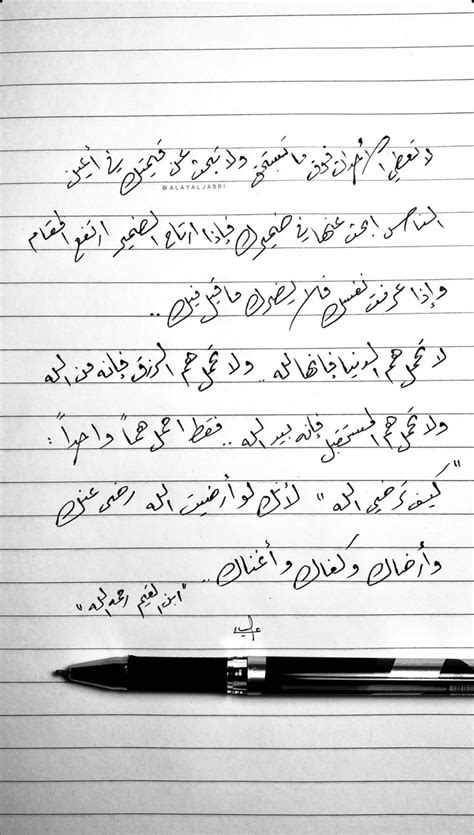 لا تعطي الأحداث فوق ما تستحق ولا تبحث عن قيمتك في أعين
@ALAYALJABRI
الناس ابحث عنها في ضميرك فإذا ارتاح الضمير ارتفع المقام
وإذا عرفت نفسك فلا يضرك ما قيل فيك ..
لا تحمل هم الدنيا فإنها لله .. ولا تحمل هم الرزق فإنه من الله
ولا تحمل هم المستقبل فإنه بيد الله .. فقط احمل هماً واحداً :
"كيف ترضي الله" لأنك لو أرضيت الله رضى عنك
وأرضاك وكفاك وأغناك ..
"ابن القيم رحمه الله"